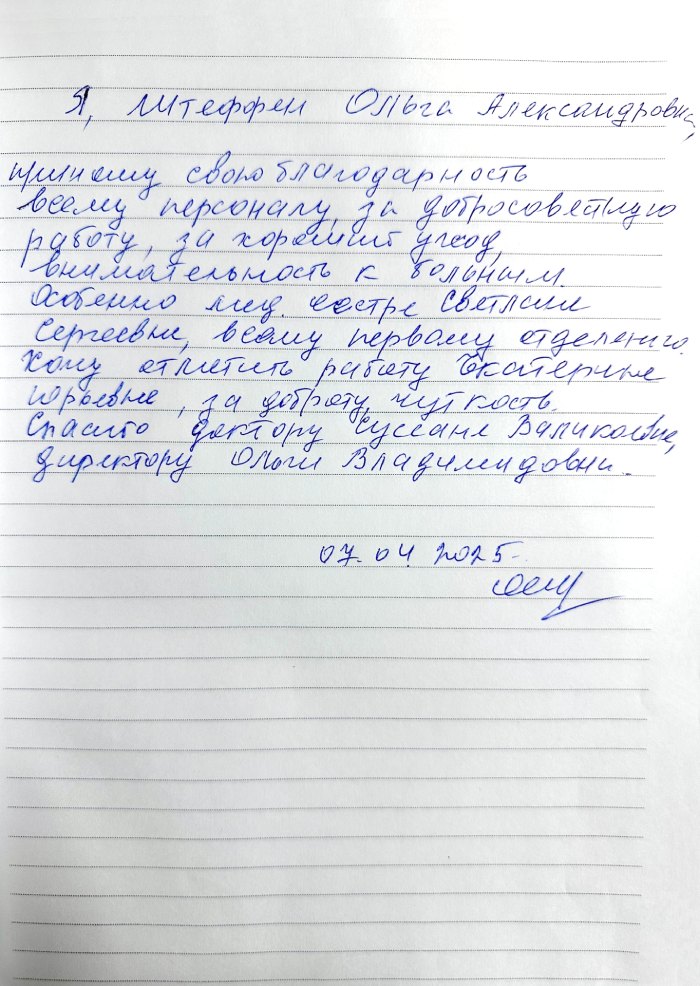 Я, Штеффен Ольга Александровна,
приношу свою благодарность
всему персоналу, за добросовестную
работу, за хороший уход,
внимательность к больным.
Особенно мед. сестре Светлане
Сергеевне, всему первому отделению.
Хочу отметить работу Екатерине
Юрьевне, за доброту, чуткость.
Спасибо доктору Валиковне,
директору Ольги Владимидовни.
07.04.2025